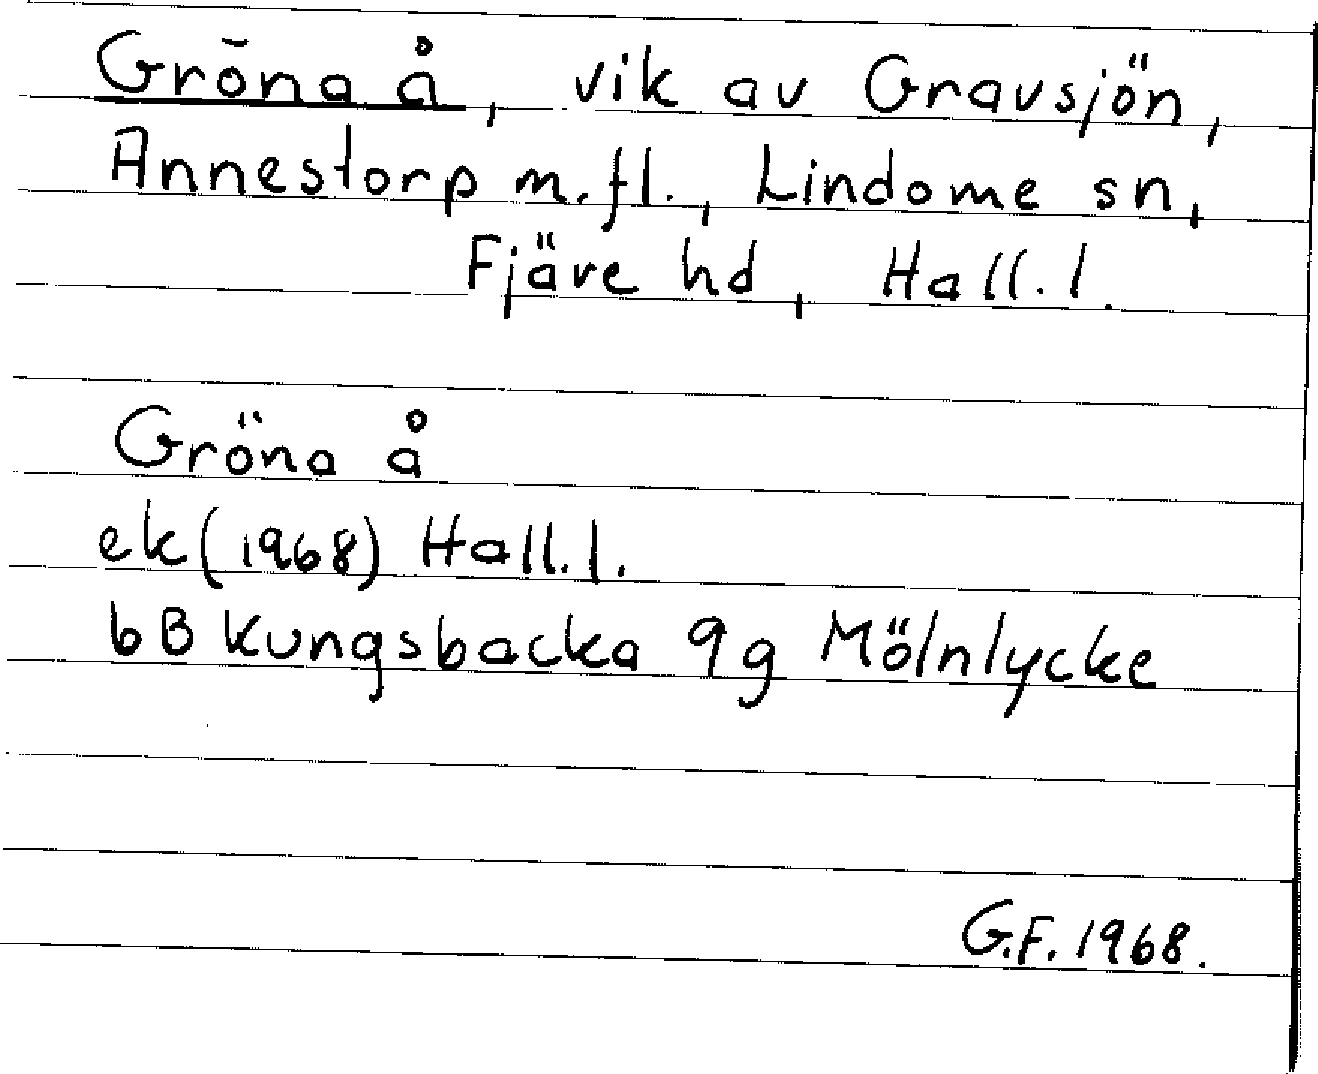 Gröna å, vik av Gravsjön,
Annestorp m.fl., Lindome sn,
Fjäre hd, Hall.l.
Gröna å
ek(1968) Hall.l.
6B Kungsbacka 9g Mölnlycke
G.F. 1968.